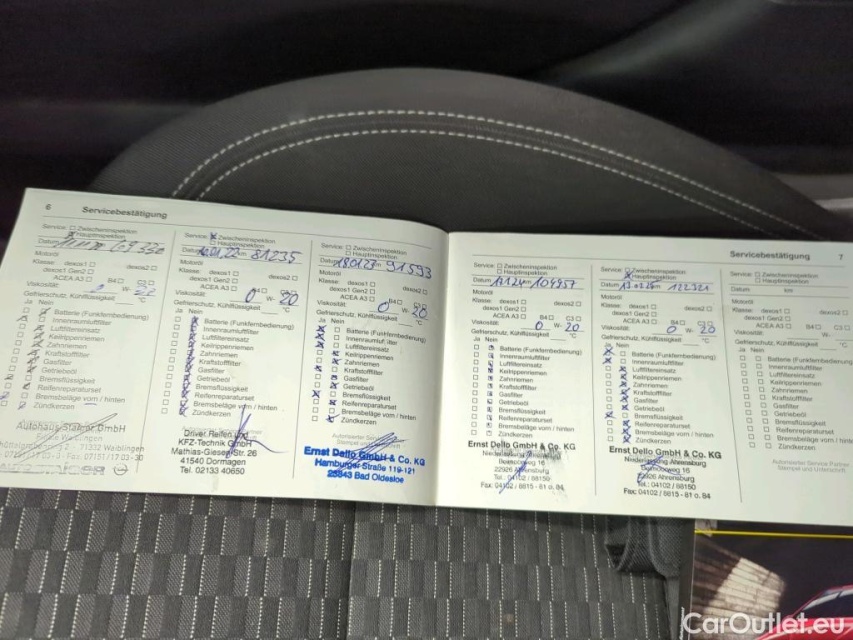 6 Servicebestätigung
Service: Zwischeninspektion
Hauptinspektion
Datum km 69 330
Motoröl
Klasse: dexos1 dexos2
dexos1 Gen2
ACEA A3 B4 C3
Viskosität: W-
Gefrierschutz, Kühlflüssigkeit °C
Ja Nein
Batterie (Funkfernbedienung)
Innenraumluftfilter
Luftfiltereinsatz
Keilrippenriemen
Zahnriemen
Kraftstofffilter
Gasfilter
Getriebeöl
Bremsflüssigkeit
Reifenreparaturset
Bremsbeläge vorn / hinten
Zündkerzen
71332 Waiblingen
Service: Zwischeninspektion
Hauptinspektion
Datum km 81235
Motoröl
Klasse: dexos1 dexos2
dexos1 Gen2
ACEA A3 B4 C3
Viskosität: 0 W- 20
Gefrierschutz, Kühlflüssigkeit °C
Ja Nein
Batterie (Funkfernbedienung)
Innenraumluftfilter
Luftfiltereinsatz
Keilrippenriemen
Zahnriemen
Kraftstofffilter
Gasfilter
Getriebeöl
Bremsflüssigkeit
Reifenreparaturset
Bremsbeläge vorn / hinten
Zündkerzen
Driver Reifen und
KFZ-Technik GmbH
Mathias-Giesen-Str. 26
41540 Dormagen
Tel. 02133 40650
Service: Zwischeninspektion
Hauptinspektion
Datum km 91593
Motoröl
Klasse: dexos1 dexos2
dexos1 Gen2
ACEA A3 B4 C3
Viskosität: 0 W- 20
Gefrierschutz, Kühlflüssigkeit °C
Ja Nein
Batterie (Funkfernbedienung)
Innenraumluftfilter
Luftfiltereinsatz
Keilrippenriemen
Zahnriemen
Kraftstofffilter
Gasfilter
Getriebeöl
Bremsflüssigkeit
Reifenreparaturset
Bremsbeläge vorn / hinten
Zündkerzen
Ernst Dello GmbH & Co. KG
Hamburger Straße 119-121
23843 Bad Oldesloe
Servicebestätigung 7
Service: Zwischeninspektion
Hauptinspektion
Datum km 104957
Motoröl
Klasse: dexos1 dexos2
dexos1 Gen2
ACEA A3 B4 C3
Viskosität: 0 W- 20
Gefrierschutz, Kühlflüssigkeit °C
Ja Nein
Batterie (Funkfernbedienung)
Innenraumluftfilter
Luftfiltereinsatz
Keilrippenriemen
Zahnriemen
Kraftstofffilter
Gasfilter
Getriebeöl
Bremsflüssigkeit
Reifenreparaturset
Bremsbeläge vorn / hinten
Zündkerzen
Ernst Dello GmbH & Co. KG
22926 Ahrensburg
Tel.: 04102 / 88150
Fax: 04102 / 8815 - 81 o. 84
Service: Zwischeninspektion
Hauptinspektion
Datum km 122321
Motoröl
Klasse: dexos1 dexos2
dexos1 Gen2
ACEA A3 B4 C3
Viskosität: 0 W- 20
Gefrierschutz, Kühlflüssigkeit °C
Ja Nein
Batterie (Funkfernbedienung)
Innenraumluftfilter
Luftfiltereinsatz
Keilrippenriemen
Zahnriemen
Kraftstofffilter
Gasfilter
Getriebeöl
Bremsflüssigkeit
Reifenreparaturset
Bremsbeläge vorn / hinten
Zündkerzen
Ernst Dello GmbH & Co. KG
Niederlassung Ahrensburg
22926 Ahrensburg
Tel.: 04102 / 88150
Fax: 04102 / 8815 - 81 o. 84
Service: Zwischeninspektion
Hauptinspektion
Datum km
Motoröl
Klasse: dexos1 dexos2
dexos1 Gen2
ACEA A3 B4 C3
Viskosität: W-
Gefrierschutz, Kühlflüssigkeit °C
Ja Nein
Batterie (Funkfernbedienung)
Innenraumluftfilter
Luftfiltereinsatz
Keilrippenriemen
Zahnriemen
Kraftstofffilter
Gasfilter
Getriebeöl
Bremsflüssigkeit
Reifenreparaturset
Bremsbeläge vorn / hinten
Zündkerzen
Autorisierter Service Partner
Stempel und Unterschrift
CarOutlet.eu